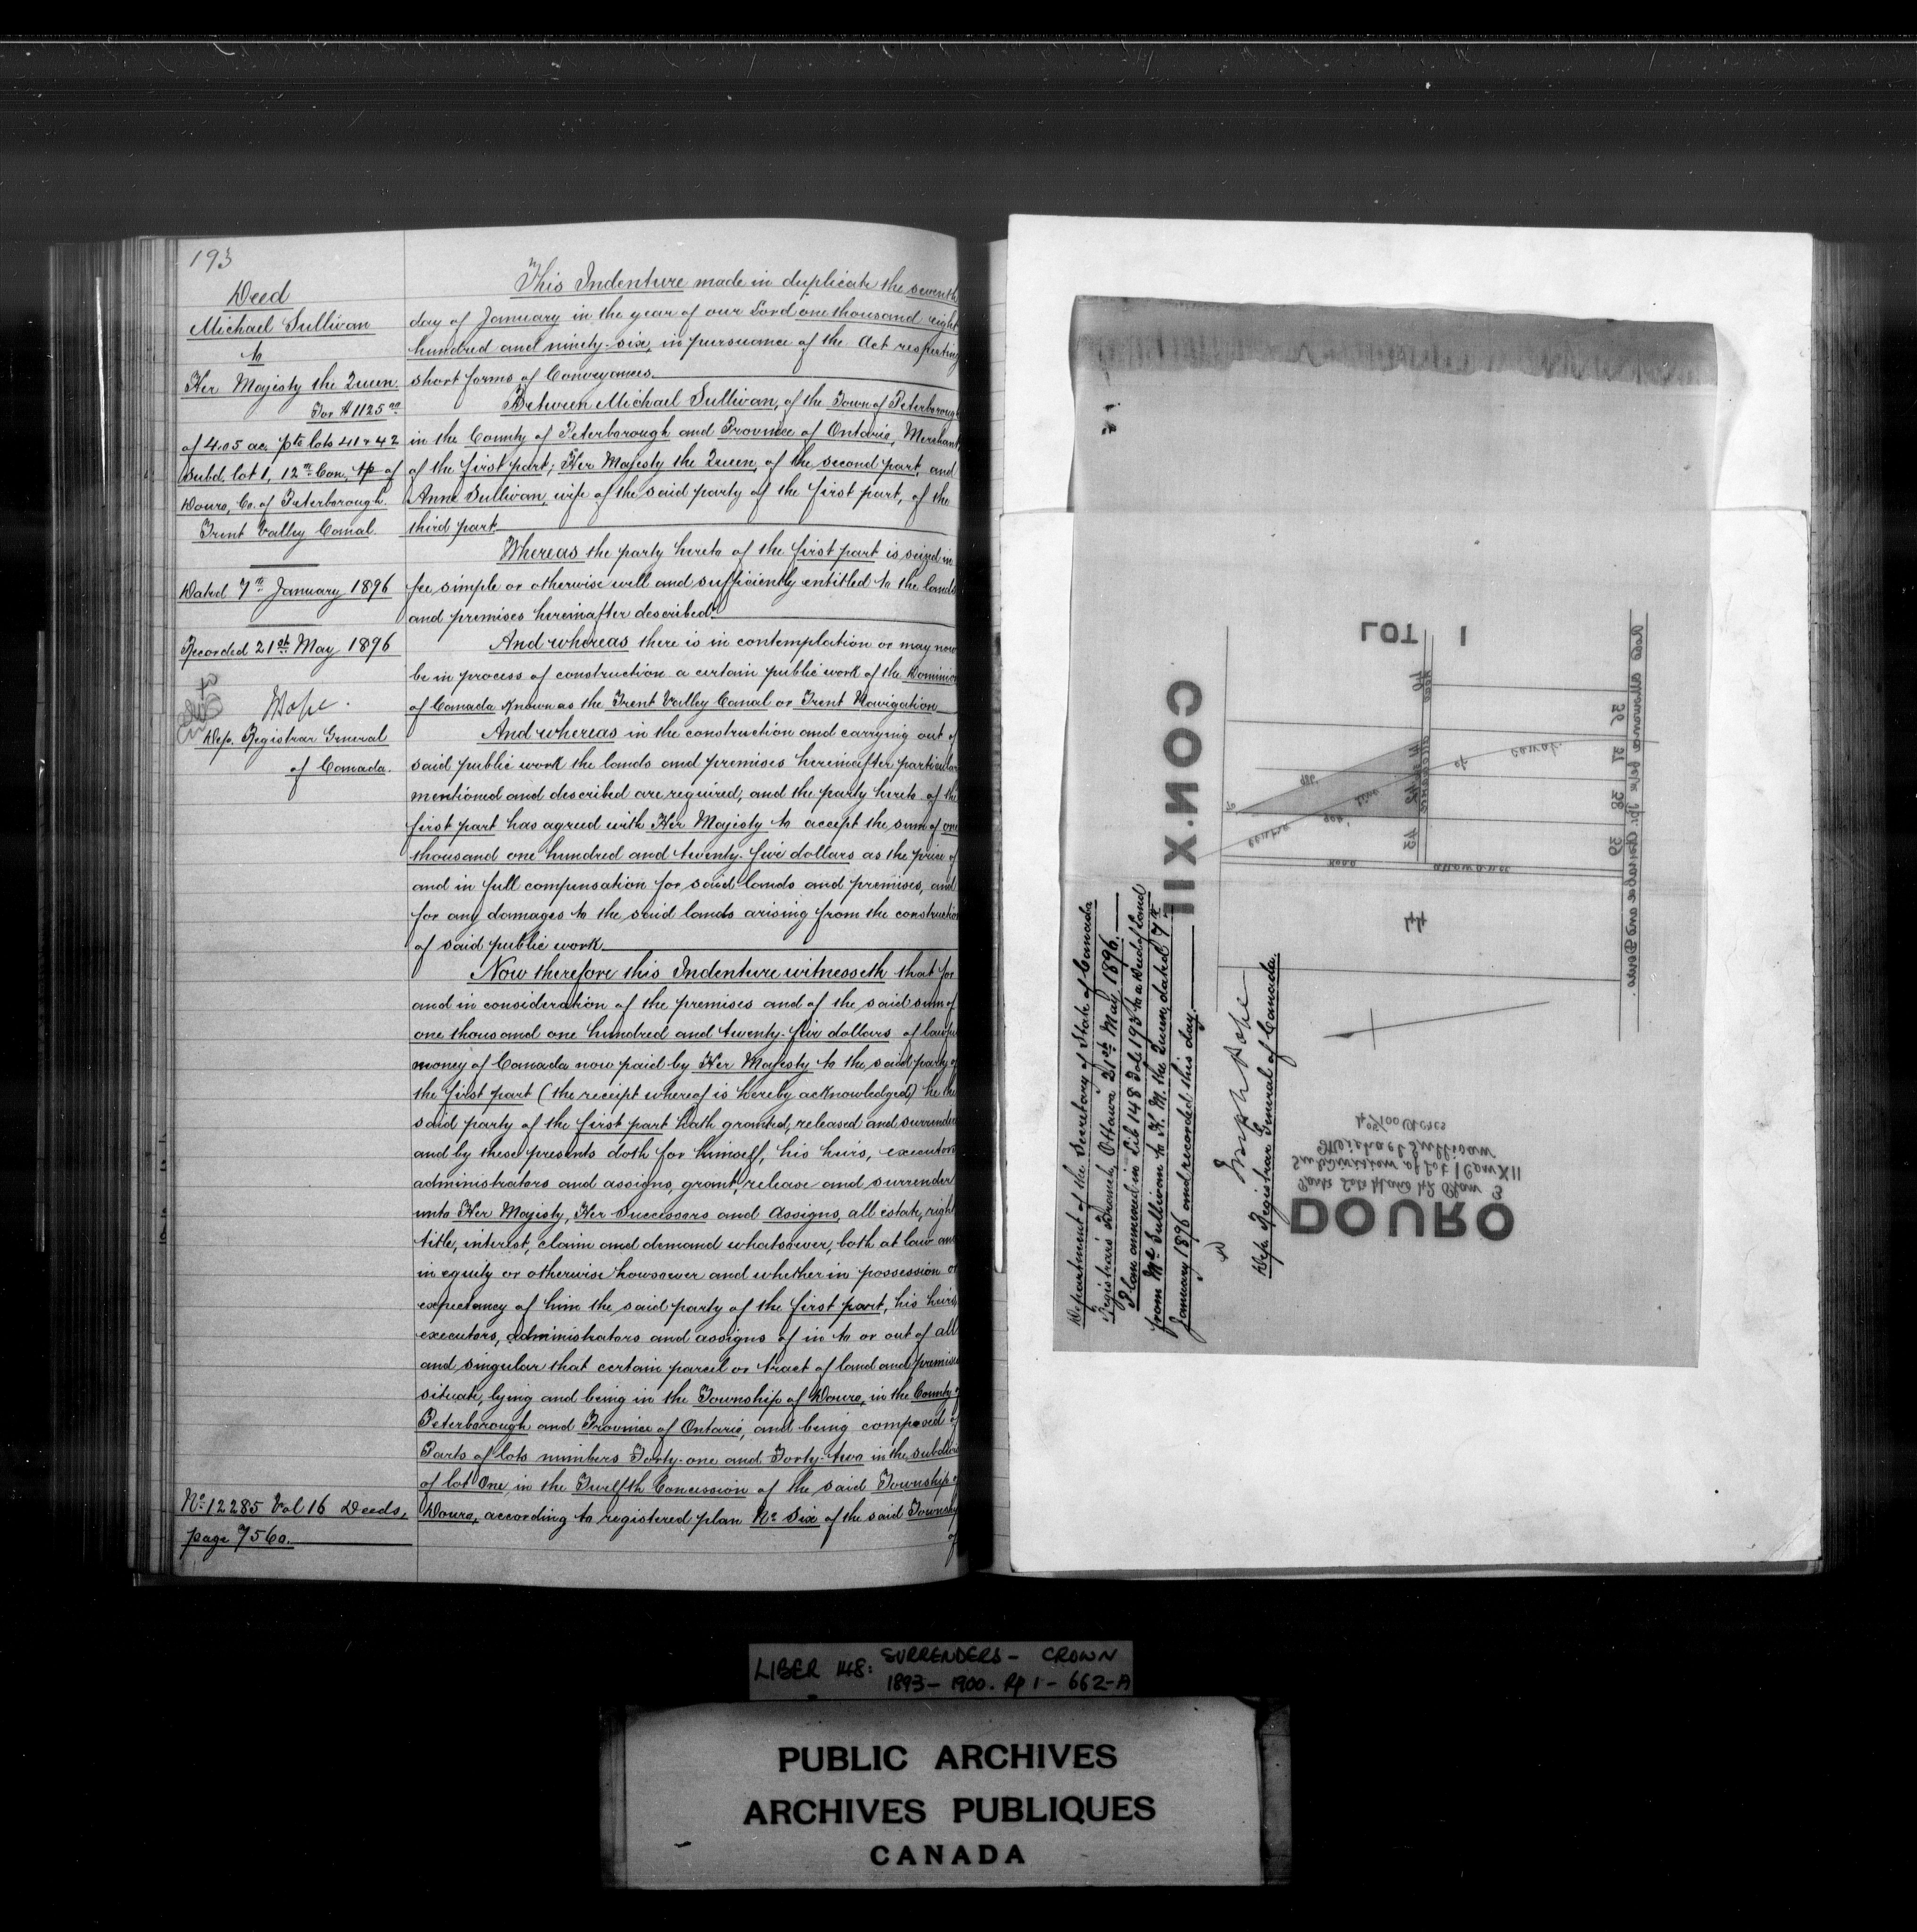 193
Deed
Michael Sullivan
to
Her Majesty the Queen.
For $1125 00
of 4.05 ac. pts lots 41 & 42
Subd. lot 1, 12th Con. Tp of
Douro, Co. of Peterborough.
Trent Valley Canal.
Dated 7th January 1896
Recorded 21st May 1896
JPope.
Dep. Registrar General
of Canada.
No 12285 Vol 16 Deeds,
page 7560.
This Indenture made in duplicate the seventh
day of January in the year of our Lord one thousand eight
hundred and ninety-six, in pursuance of the Act respecting
short forms of Conveyances.
Between Michael Sullivan, of the Town of Peterborough
in the County of Peterborough and Province of Ontario, Merchant
of the first part; Her Majesty the Queen, of the second part, and
Anne Sullivan, wife of the said party of the first part, of the
third part.
Whereas the party hereto of the first part is seized in
fee simple or otherwise well and sufficiently entitled to the lands
and premises hereinafter described.
And whereas there is in contemplation or may now
be in process of construction a certain public work of the Dominion
of Canada known as the Trent Valley Canal or Trent Navigation
And whereas in the construction and carrying out of
said public work the lands and premises hereinafter particular
mentioned and described are required, and the party hereto of the
first part has agreed with Her Majesty to accept the sum of one
thousand one hundred and twenty-five dollars as the price of
and in full compensation for said lands and premises, and
for any damages to the said lands arising from the construction
of said public work.
Now therefore this Indenture witnesseth that for
and in consideration of the premises and of the said sum of
one thousand one hundred and twenty-five dollars of lawful
money of Canada now paid by Her Majesty to the said party of
the first part (the receipt whereof is hereby acknowledged) he the
said party of the first part hath granted, released and surrendered
and by these presents doth for himself, his heirs, executors
administrators and assigns, grant, release and surrender
unto Her Majesty, Her Successors and Assigns, all estate, right
title, interest, claim and demand whatsoever, both at law and
in equity or otherwise howsoever and whether in possession or
expectancy of him the said party of the first part, his heirs
executors, administrators and assigns of in to or out of all
and singular that certain parcel or tract of land and premises
situate, lying and being in the Township of Douro, in the County of
Peterborough and Province of Ontario, and being composed of
Parts of lots numbers Forty-one and Forty-two in the subdivi
of lot One, in the Twelfth Concession of the said Township of
Douro, according to registered plan No Six of the said Township
of
LOT 1
CON. XII
40
41
42
43
36
37
38
39
44
centre line of canal
Road allowance
Department of the Secretary of State of Canada
Registrar's Branch, Ottawa 21st May 1896.
Plan annexed in Lib 148 Fol. 193 to a Deed of land
from Ml. Sullivan to H. M. the Queen, dated 7th
January 1896 and recorded this day.
Joseph Pope
Dep. Registrar General of Canada.
DOURO
Subdivision of Lot 1 Con XII
Michael Sullivan
4 05/100 Acres
LIBER 148: SURRENDERS - CROWN
1893 - 1900. Pp 1 - 662-A
PUBLIC ARCHIVES
ARCHIVES PUBLIQUES
CANADA